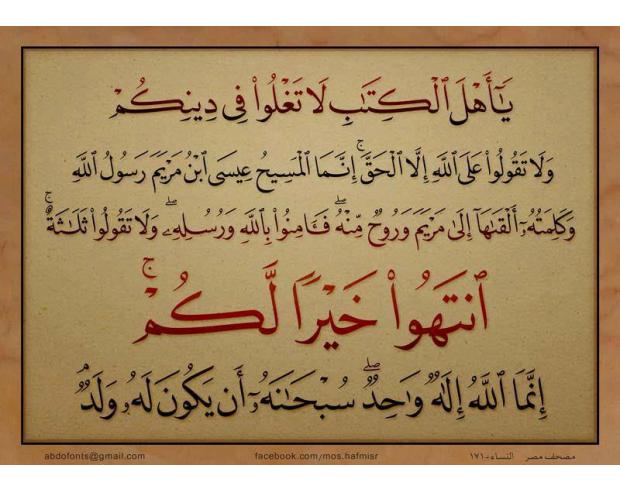 يَٰٓأَهْلَ ٱلْكِتَٰبِ لَا تَغْلُوا۟ فِى دِينِكُمْ
وَلَا تَقُولُوا۟ عَلَى ٱللَّهِ إِلَّا ٱلْحَقَّ ۚ إِنَّمَا ٱلْمَسِيحُ عِيسَى ٱبْنُ مَرْيَمَ رَسُولُ ٱللَّهِ
وَكَلِمَتُهُۥٓ أَلْقَىٰهَآ إِلَىٰ مَرْيَمَ وَرُوحٌ مِّنْهُ ۖ فَـَٔامِنُوا۟ بِٱللَّهِ وَرُسُلِهِۦ ۖ وَلَا تَقُولُوا۟ ثَلَٰثَةٌ ۚ
ٱنتَهُوا۟ خَيْرًا لَّكُمْ ۚ
إِنَّمَا ٱللَّهُ إِلَٰهٌ وَٰحِدٌ ۖ سُبْحَٰنَهُۥٓ أَن يَكُونَ لَهُۥ وَلَدٌ ۘ
abdofonts@gmail.com facebook.com/mos.hafmisr مصحف مصر النساء - ١٧١